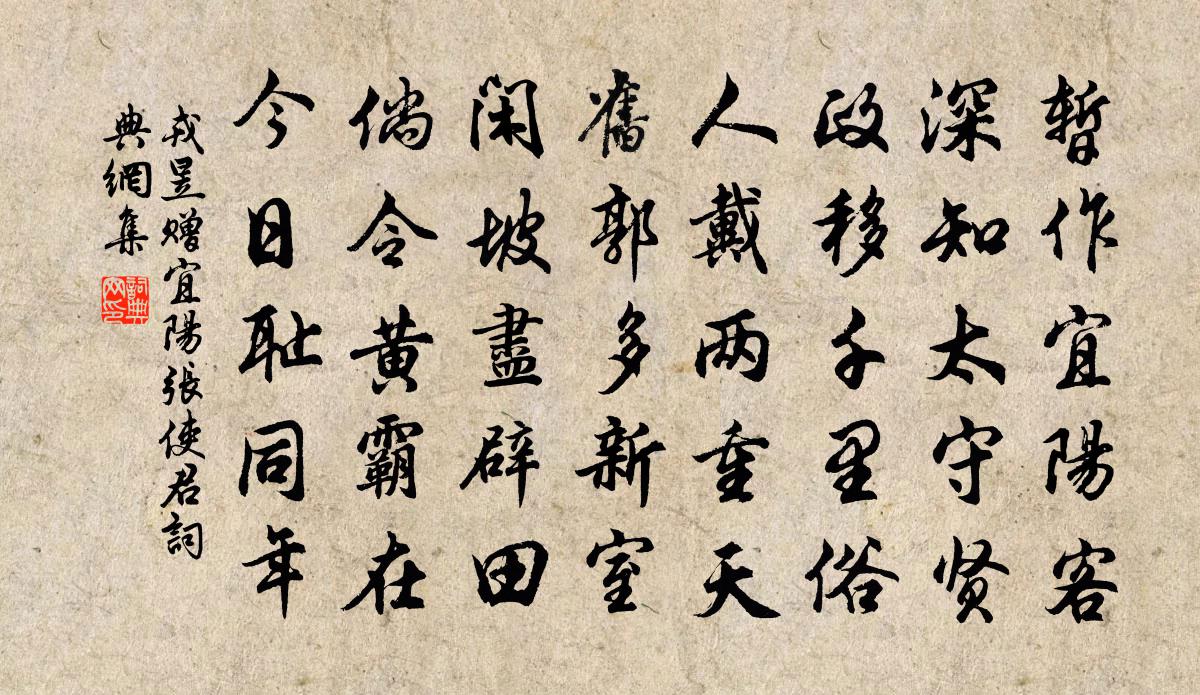 暫作宜陽客
深知太守贤
政移千里俗
人戴两重天
舊郭多新室
閑坡盡辟田
倘令黄霸在
今日耻同年
戎昱赠宜陽張使君詞
典網集
詞典
网印